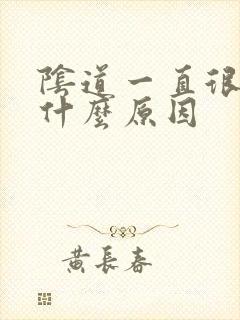 陰道一直很
什麼原因
黃長春